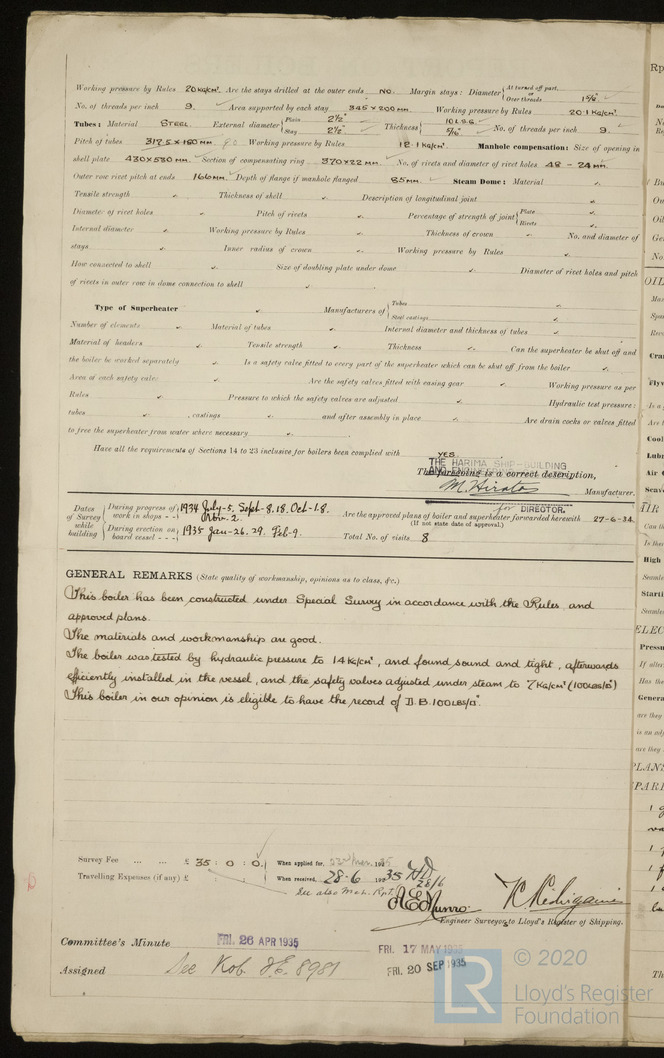 Working pressure by Rules 20 KG/CM². Are the stays drilled at the outer ends NO. Margin stays: Diameter { At turned off part, or Over threads 1⅝".
No. of threads per inch 9. Area supported by each stay 345 × 200 MM. Working pressure by Rules 20.1 KG/CM².
Tubes: Material STEEL. External diameter { Plain 2½" Stay 2½" Thickness { 10 L.S.G. 5/16" No. of threads per inch 9.
Pitch of tubes Working pressure by Rules 12.1 KG/CM². Manhole compensation: Size of opening in
shell plate 430×530 MM. Section of compensating ring 370×22 MM. No. of rivets and diameter of rivet holes 48 - 24 MM.
Outer row rivet pitch at ends 166 MM. Depth of flange if manhole flanged 85 MM. Steam Dome: Material
Tensile strength Thickness of shell Description of longitudinal joint
Diameter of rivet holes Pitch of rivets Percentage of strength of joint { Plate Rivets
Internal diameter Working pressure by Rules Thickness of crown No. and diameter of
stays Inner radius of crown Working pressure by Rules
How connected to shell Size of doubling plate under dome Diameter of rivet holes and pitch
of rivets in outer row in dome connection to shell
Type of Superheater Manufacturers of { Tubes Steel castings
Number of elements Material of tubes Internal diameter and thickness of tubes
Material of headers Tensile strength Thickness Can the superheater be shut off and
the boiler be worked separately Is a safety valve fitted to every part of the superheater which can be shut off from the boiler
Area of each safety valve Are the safety valves fitted with easing gear Working pressure as per
Rules Pressure to which the safety valves are adjusted Hydraulic test pressure:
tubes , castings and after assembly in place Are drain cocks or valves fitted
to free the superheater from water where necessary
Have all the requirements of Sections 14 to 23 inclusive for boilers been complied with YES
THE HARIMA SHIP-BUILDING
The foregoing is a correct description,
M. Hirata Manufacturer.
for DIRECTOR.
Dates of Survey while building { During progress of work in shops - - 1934 July-5, Sept-8.18, Oct-1.8. Nov-2.
During erection on board vessel - - - 1935 Jan-26.29. Feb-9.
Are the approved plans of boiler and superheater forwarded herewith 27-6-34
(If not state date of approval.)
Total No. of visits 8
GENERAL REMARKS (State quality of workmanship, opinions as to class, &c.)
This boiler has been constructed under Special Survey in accordance with the Rules and
approved plans.
The materials and workmanship are good.
The boiler was tested by hydraulic pressure to 14 KG/CM², and found sound and tight, afterwards
efficiently installed in the vessel, and the safety valves adjusted under steam to 7 KG/CM² (100LBS/□")
This boiler in our opinion is eligible to have the record of D.B. 100LBS/□".
Survey Fee ... ... £ 35 : 0 : 0. When applied for, 192
Travelling Expenses (if any) £ : : When received, 28-6 1935
28/6
See also Mch. Rpt.
A.E. Munro.
Engineer Surveyor to Lloyd's Register of Shipping.
Committee's Minute FRI. 26 APR 1935 FRI. 17 MAY 1935
FRI. 20 SEP 1935
Assigned See Kob. F.E. 8981
© 2020
LR
Lloyd's Register
Foundation